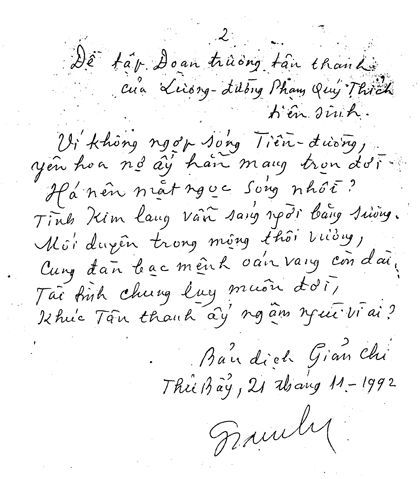 2
Đề tập Đoạn trường tân thanh
của Lương-đường Phạm Quý Thích
tiên sinh.
Ví không ngợp sóng Tiền-đường,
yên hoa nợ ấy hẳn mang trọn đời.
Há nên mặt ngọc sóng nhồi?
Tình Kim lang vẫn sáng ngời bằng sương.
Mối duyên trong mộng thôi vương,
Cung đàn bạc mệnh oán vang còn dài.
Tài tình chung lụy muôn đời,
Khúc Tân thanh ấy ngậm ngùi vì ai?
Bản dịch Giản Chi
Thứ Bảy, 21 tháng 11-1992